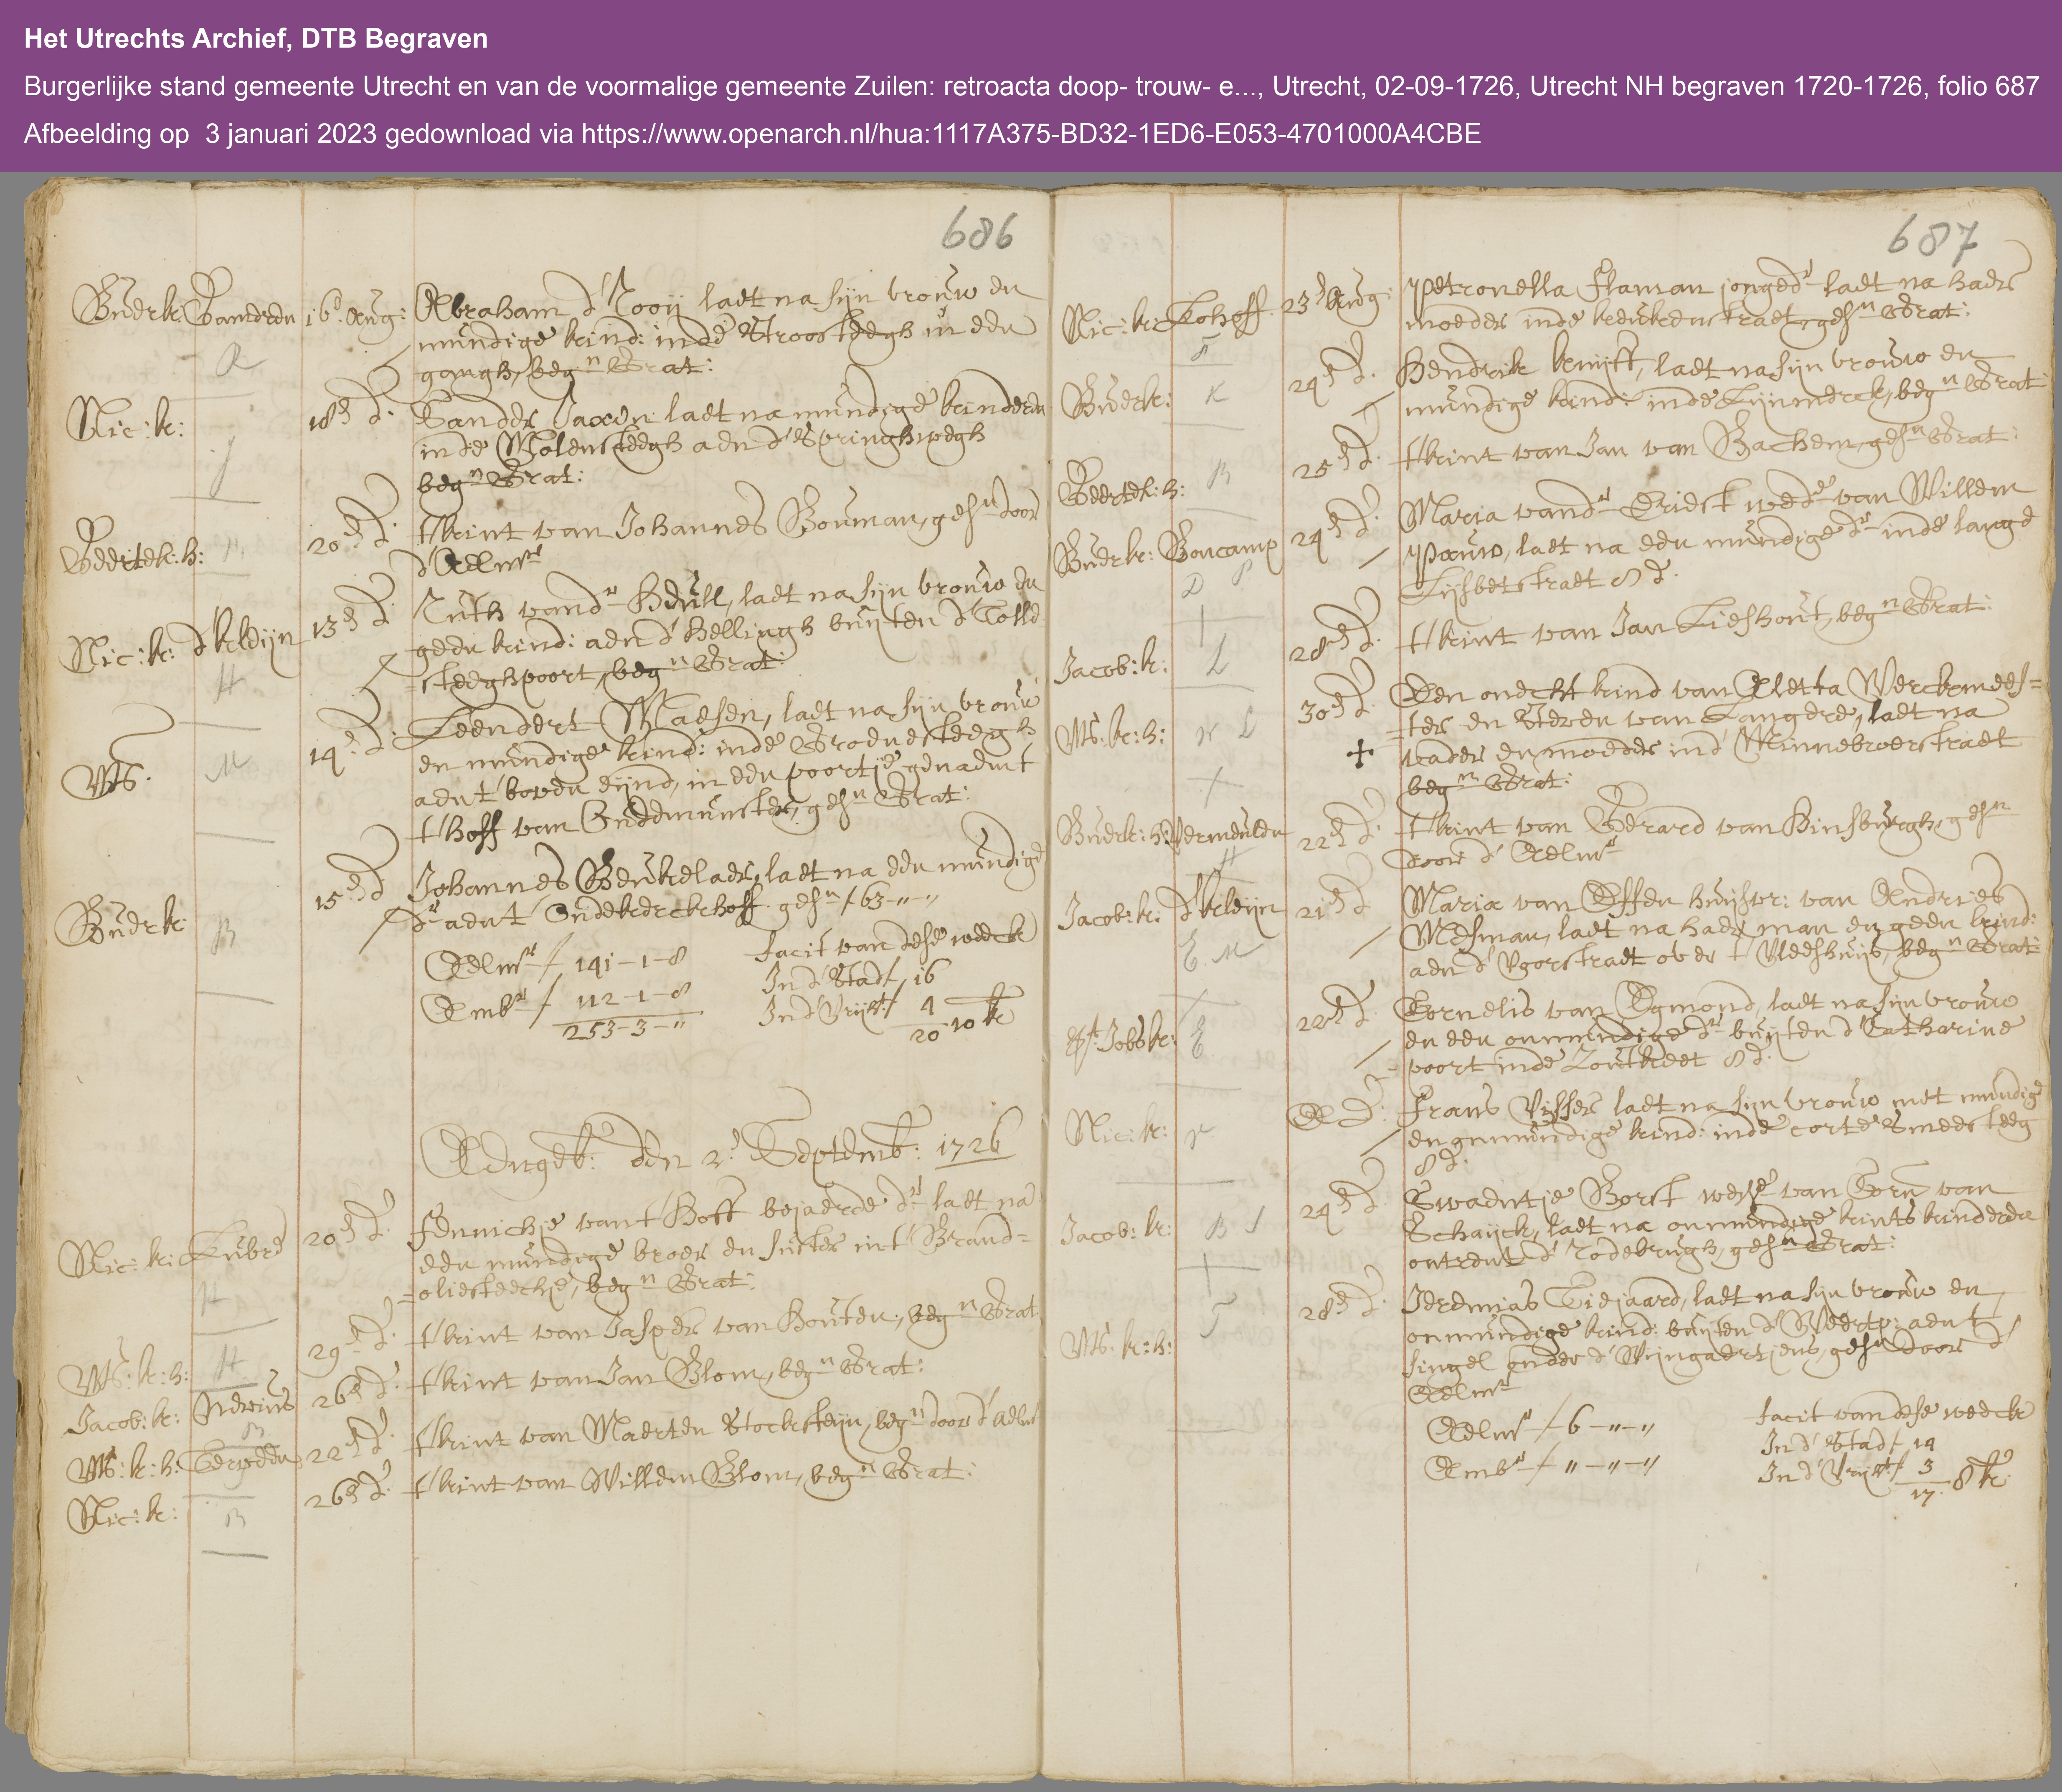 Het Utrechts Archief, DTB Begraven
Burgerlijke stand gemeente Utrecht en van de voormalige gemeente Zuilen: retroacta doop- trouw- e..., Utrecht, 02-09-1726, Utrecht NH begraven 1720-1726, folio 687
Afbeelding op 3 januari 2023 gedownload via https://www.openarch.nl/hua:1117A375-BD32-1ED6-E053-4701000A4CBE
686
Buerk: 16 Aug: Abraham d' Rooij laet na sijn vrouw en
mundige kind: inde Stroosteegh in een
gangh, beg.n Grat:
Nic: k: 18 d: Sander laet na mundige kinderen
inde Molensteegh aen d' Springhwegh
beg.n Grat:
Geertek: h: 20 d: t kint van Johannes Bouman, ges.n door
d' Aelm.r
Nic: k: d' Keldijn 13 d: Ruth vand.r Heull, laet na sijn vrouw en
geen kind: aen d' Hellingh buijten d' Tolle
=steeghpoort, beg.n Grat:
H
14 d: Leendert Maesen, laet na sijn vrouw
en mundige kind: inde Groenesteegh
aen t boven eijnd, in een poortje genaemt
t Hoff van ges.n Grat:
M
Buerk: 15 d: Johannes Beukelaer, laet na een mundige
d.r aen t Oudekerckhoff. ges.n f 63-"-"
B
Aelm.r f 141-1-8 facit van dese weeck
Amb.t f 112-1-8 In d' Stadt, 16
253-3-" In d' Vrijh.t 4
20-10 k
Aengeb: den 2. Septemb: 1726
Nic: k: 20 d: Jennichje van t Hoff bejaerde d.r laet na
een mundige broer en suster int Brand=
=oliesteechje, beg.n Grat:
H
Ms: k: h: 29 d: t kint van Jasper van Houten, beg.n Grat:
H
Jacob: k: 26 d: t kint van Jan Blom, beg.n Grat:
B
Ms: k: h: 22 d: t kint van Maerten Stocksteijn, beg.n door d' Aelm.r
Nic: k: 26 d: t kint van Willem Blom, beg.n Grat:
B
687
Nic: k: Kohoff 23 Aug: Petronella Flaman jonged.r laet na haer
moeder inde keukenstraet, ges.n Grat:
F
Buerk: 24 d: Hendrik kruijff, laet na sijn vrouw en
mundige kind: inde Lijnmerck, beg.n Grat:
K
Geertek: h: 25 d: t kint van Jan van Bachem, ges.n Grat:
B
Buerk: Boucamp 24 d: Maria vand.r Eriest wed.e van Willem
Pauw, laet na een mundige d.r inde lange
Lijsbetstraet 8 d:
Jacob: k: 28 d: t kint van Jan Lieshout, beg.n Grat:
L
Ms: k: h: 30 d: Een onecht kind van Aletta Werckmees=
=ter en Steven van Langere, laet na
vader en moeder ind' Minnebroerstraet
beg.n Grat:
Buerk: h: Vermeulen 22 d: t kint van Gerard van Hinsburgh, ges.n
door d' Aelm.r
H
Jacob: k: d' Keldijn 21 d: Maria van Essen huijsvr: van Andries
Mesman, laet na haer man en geen kind:
aen d' Voorstraet over t Vleeshuijs, beg.n Grat:
E. M
St. Jobsk: 22 d: Cornelis van Egmond, laet na sijn vrouw
en een onmundige d.r buijten d' Catharine
=poort inde Zoutkeet 8 d:
E
Nic: k: Frans Visser laet na sijn vrouw met mundige
en onmundige kind: inde corte Smeesteeg
8 d:
Jacob: k: 24 d: Swaentje Borst wed.e van Corn.s van
Schaijck, laet na onmundige kints kinderen
ontrent d' Rodebrugh, ges.n Grat:
B S
Ms: k: h: 28 d: Jeremias Tiejaard, laet na sijn vrouw en
onmundige kind: buijten d' Weertp: aen t
singel onder d' Wijngaertjens, ges.n door d'
Aelm.r
T
Aelm.r f 6-"-" facit van dese weeck
Amb.t f "-"-" In d' Stadt, 14
In d' Vrijh.t 3
17. 8 k: